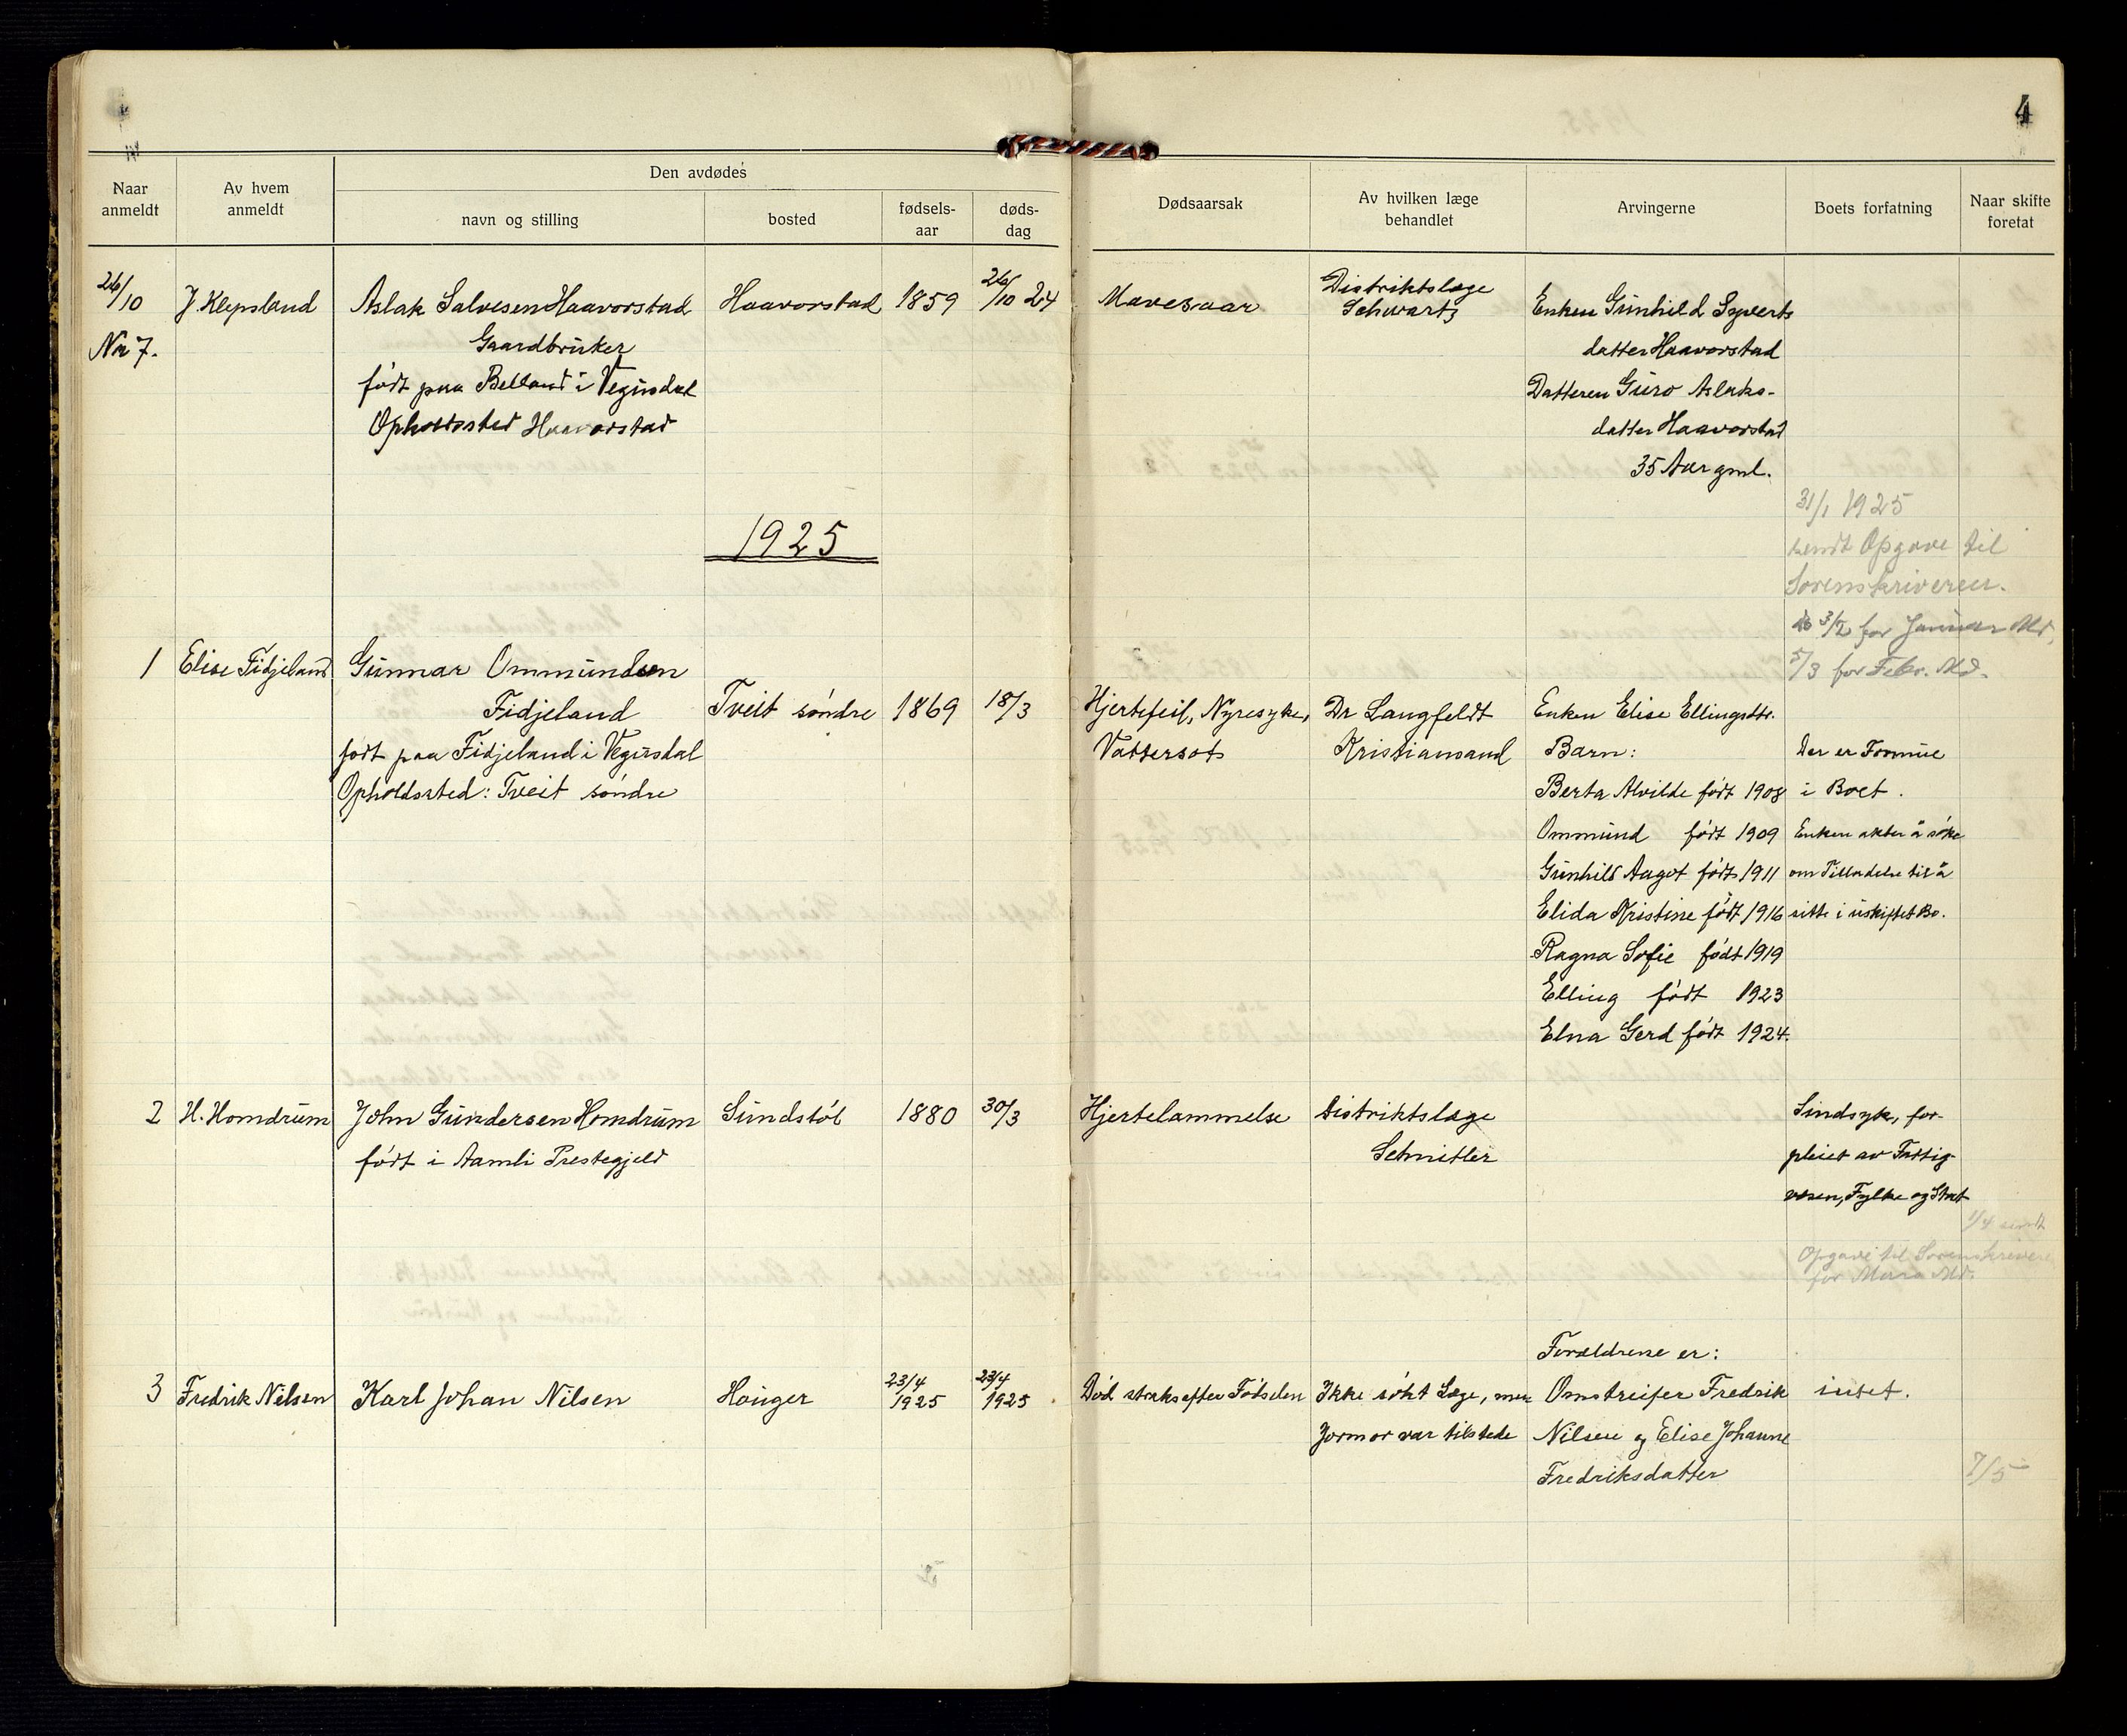 4
Naar anmeldt
Av hvem anmeldt
Den avdødes
navn og stilling
bosted
fødsels-aar
døds-dag
Dødsaarsak
Av hvilken læge behandlet
Arvingerne
Boets forfatning
Naar skifte foretat
26/10
No 7.
J. Klepsland
Aslak Salvesen Haavorstad
Gaardbruker
født paa Belland i Vegusdal
Opholdssted Haavorstad
Haavorstad
1859
26/10 24
Mavesaar
Distriktslæge
Schwartz
Enken Gunhild Syverts
datter Haavorstad
Datteren Guro Aslaks-
datter Haavorstad
35 Aar gml.
1925
31/1 1925
sendt Opgave til
Sorenskriveren.
3/2 for Januar Md.
5/3 for Febr. Md.
1
Elise Fidjeland
Gunnar Ommundsen
Fidjeland
født paa Fidjeland i Vegusdal
Opholdssted: Tveit søndre
Tveit søndre
1869
18/3
Hjertefeil, Nyresyke,
Vattersot
Dr Langfeldt
Kristiansand
Enken Elise Ellingsdtr.
Barn:
Berta Alvilde født 1908
Ommund født 1909
Gunhild Aagot født 1911
Elida Kristine født 1916
Ragna Sofie født 1919
Elling født 1923
Elna Gerd født 1924.
Der er Formue
i Boet.
Enken akter å søke
om Tilladelse til å
sitte i uskiftet Bo.
2
H. Homdrum
John Gundersen Homdrum
født i Aamli Prestegjeld
Sundstøl
1880
30/3
Hjertelammelse
Distriktslæge
Schnitler
Sindsyk, for-
pleiet av Fattig-
vesen, Fylke og Stat
1/4 sendt
Opgave til Sorenskriveren
for Mars Md.
3
Fredrik Nilsen
Karl Johan Nilsen
Høiger
23/4 1925
23/4 1925
Død straks efter Fødselen
Ikke søkt Læge, men
Jormor var tilstede
Forældrene er:
Omstreifer Fredrik
Nilsen og Elise Johanne
Fredriksdatter
intet.
7/5